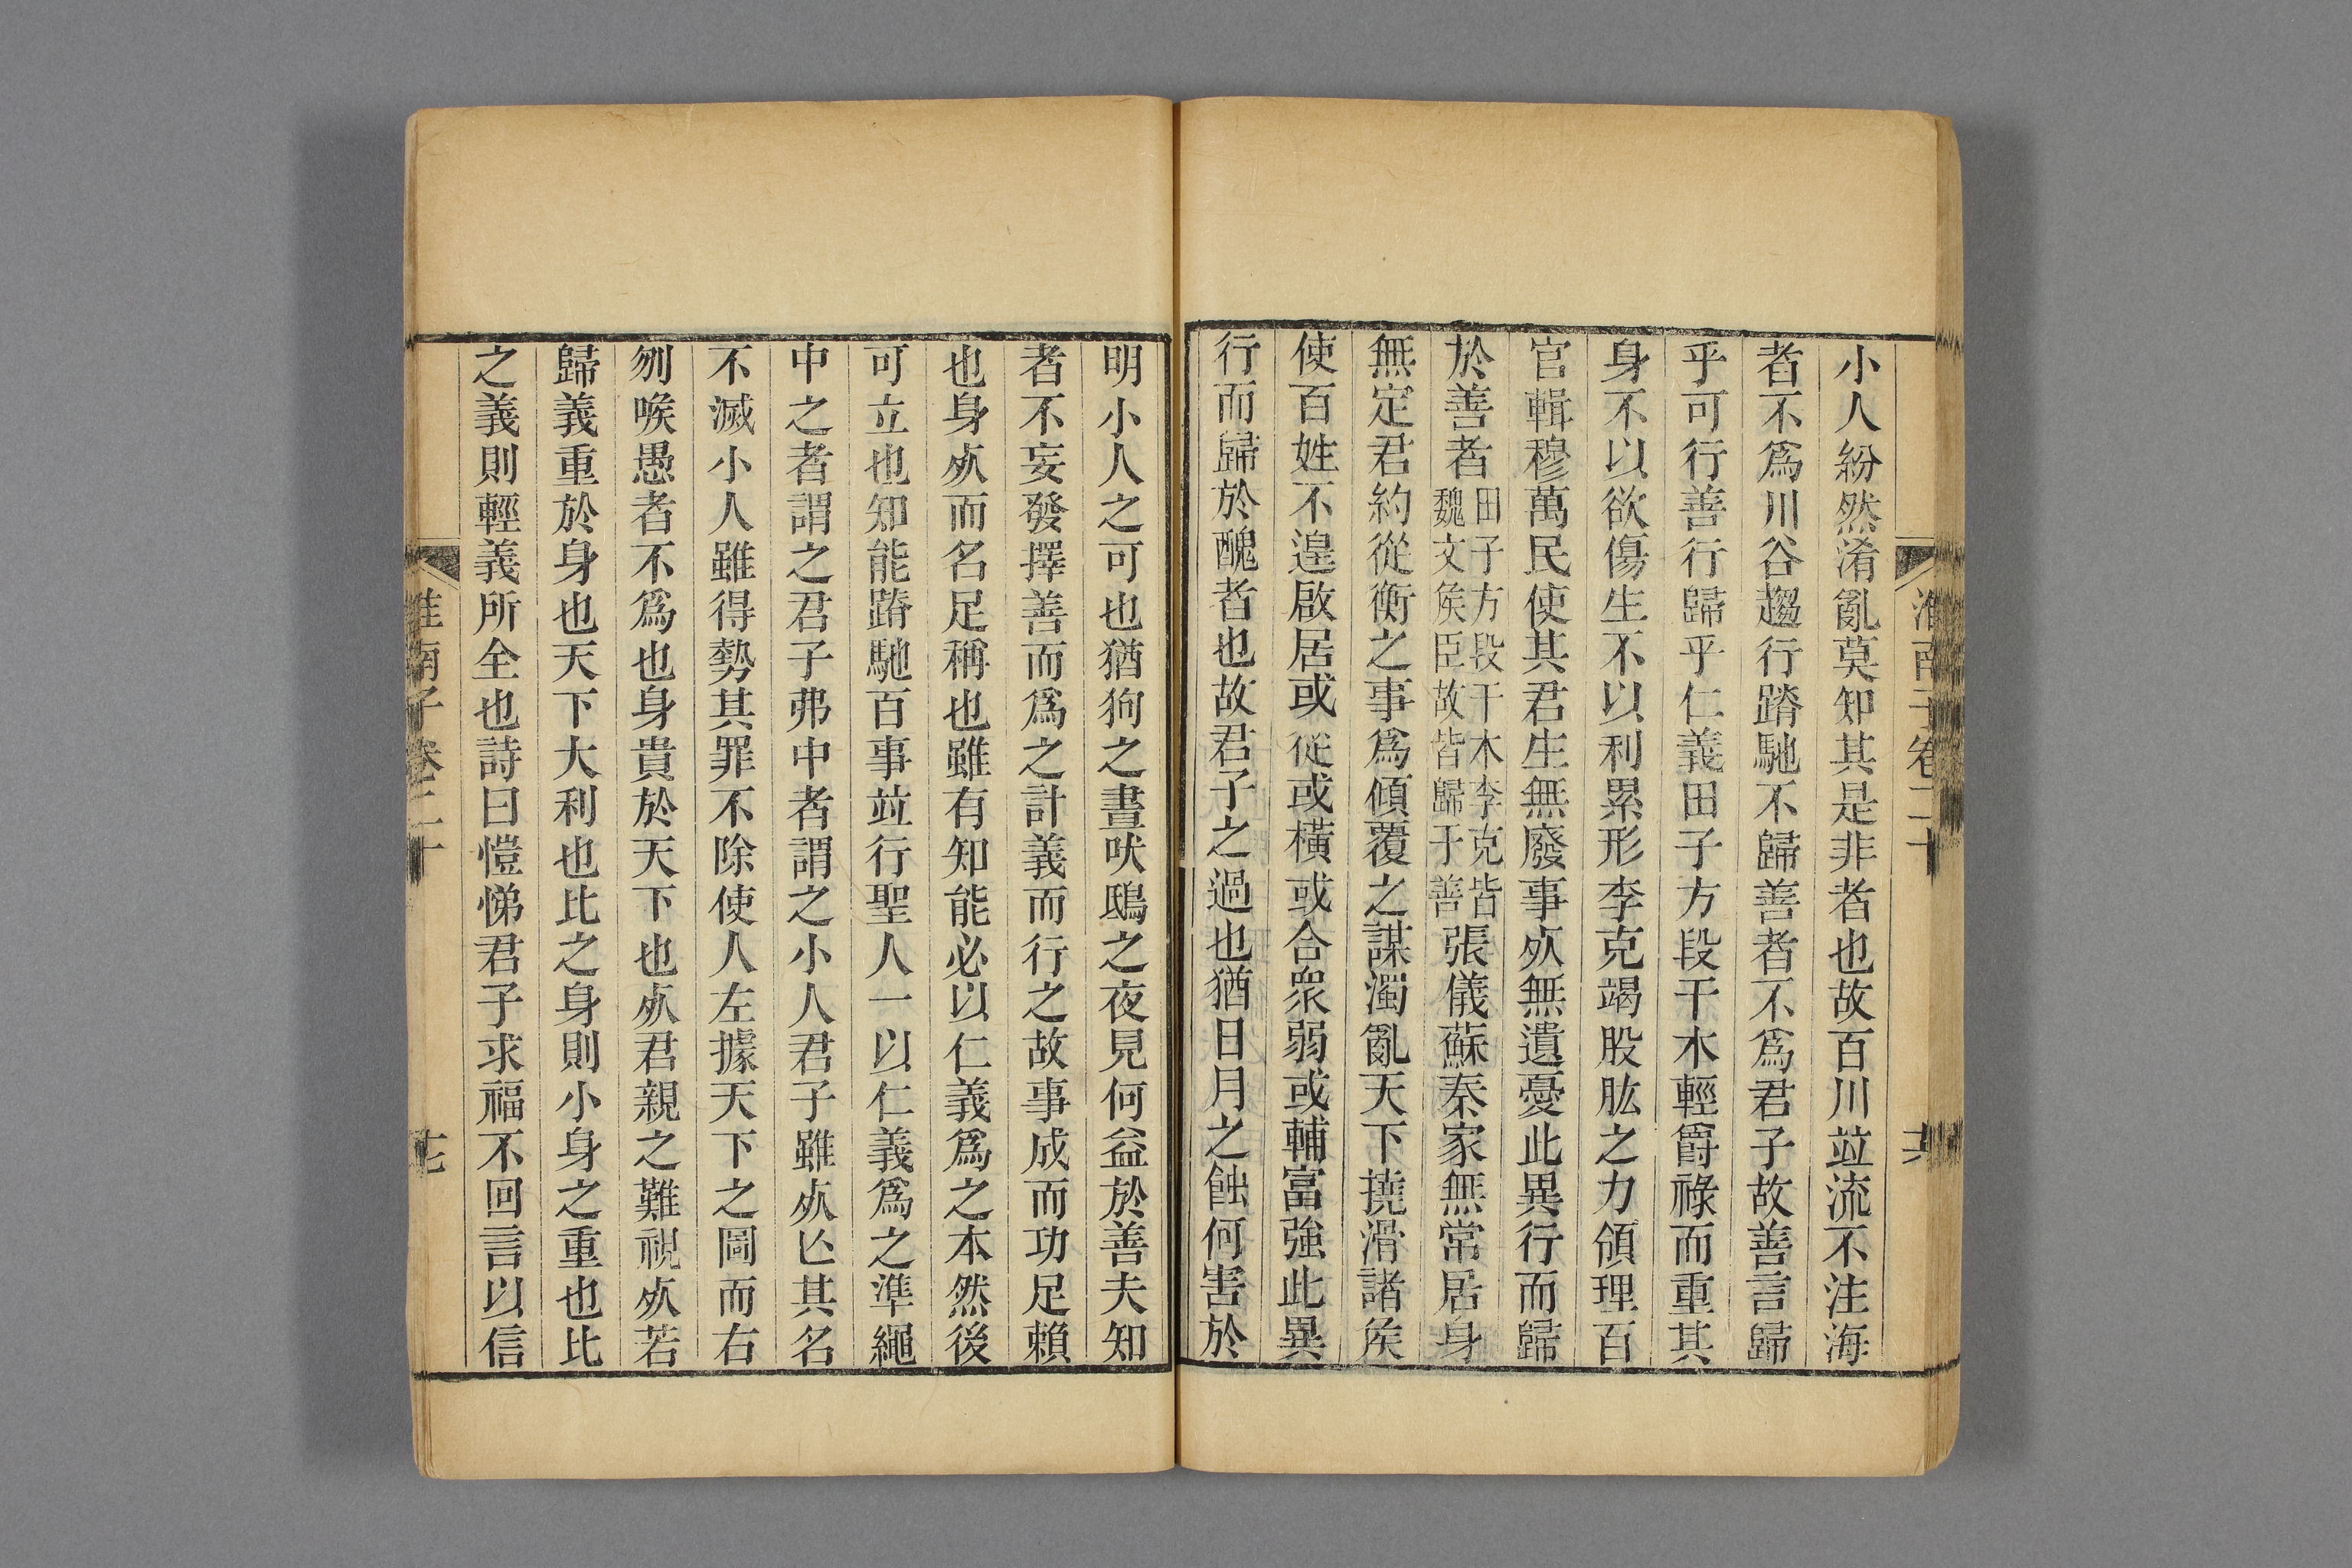 淮南子卷二十
小人紛然淆亂莫知其是非者也故百川竝流不注海
者不爲川谷趨行踳馳不歸善者不爲君子故善言歸
乎可行善行歸乎仁義田子方段干木輕爵祿而重其
身不以欲傷生不以利累形李克竭股肱之力領理百
官輯穆萬民使其君生無廢事㱙無遺憂此異行而歸
於善者田子方段干木李克皆魏文矦臣故皆歸于善張儀蘇秦家無常居身
無定君約從衡之事爲傾覆之謀濁亂天下撓滑諸矦
使百姓不遑啟居或從或橫或合衆弱或輔富強此異
行而歸於醜者也故君子之過也猶日月之蝕何害於
明小人之可也猶狗之晝吠鴟之夜見何益於善夫知
者不妄發擇善而爲之計義而行之故事成而功足賴
也身㱙而名足稱也雖有知能必以仁義爲之本然後
可立也知能踳馳百事竝行聖人一以仁義爲之準繩
中之者謂之君子弗中者謂之小人君子雖㱙亾其名
不滅小人雖得勢其罪不除使人左據天下之圖而右
刎喉愚者不爲也身貴於天下也㱙君親之難視㱙若
歸義重於身也天下大利也比之身則小身之重也比
之義則輕義所全也詩曰愷悌君子求福不回言以信
淮南子卷二十